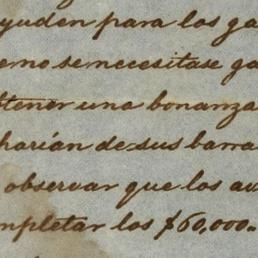 ayuden para los ga
emo se necesitase ga
btener una bonanza
harían de sus barra
observar que los av
mpletar los $60,000.